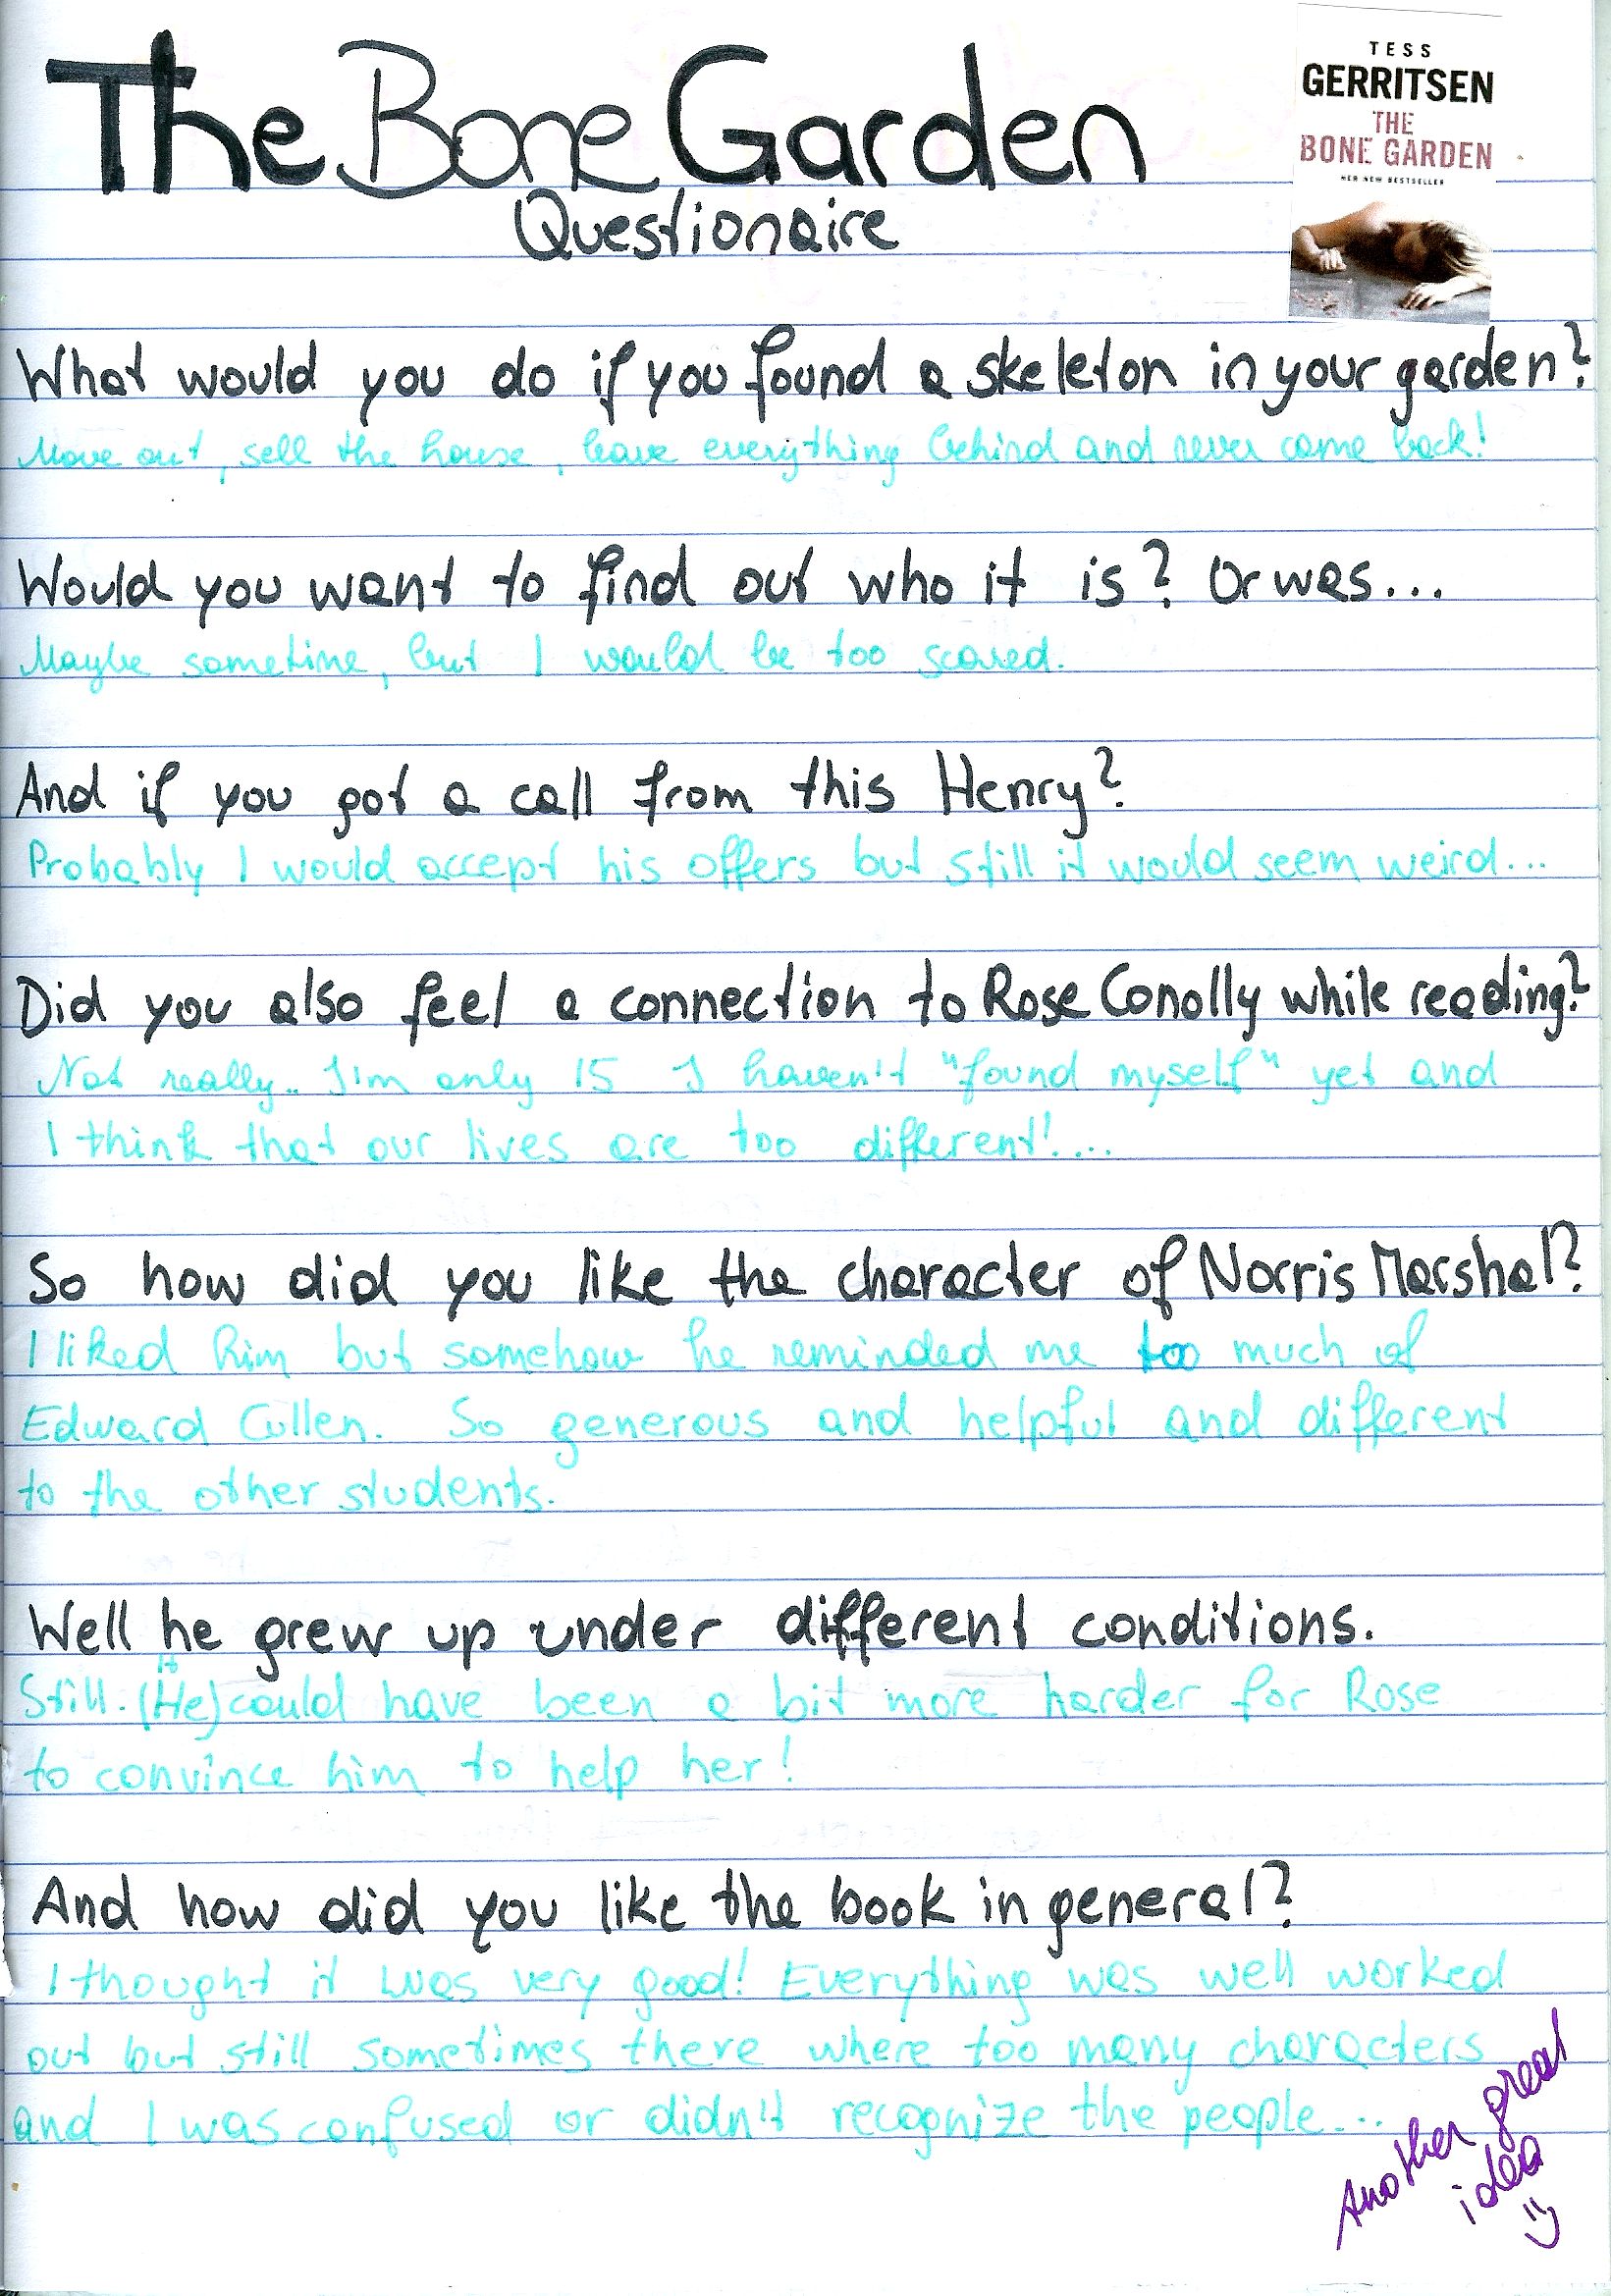 The Bone Garden
Questionaire
TESS
GERRITSEN
THE
BONE GARDEN
HER NEW BESTSELLER
What would you do if you found a skeleton in your garden?
Move out, sell the house, leave everything behind and never come back!
Would you want to find out who it is? Or was...
Maybe sometime, but I would be too scared.
And if you got a call from this Henry?
Probably I would accept his offers but still it would seem weird...
Did you also feel a connection to Rose Conolly while reading?
Not really.. I'm only 15 I haven't "found myself" yet and
I think that our lives are too different!....
So how did you like the character of Norris Marshal?
I liked him but somehow he reminded me too much of
Edward Cullen. So generous and helpful and different
to the other students.
Well he grew up under different conditions.
it
Still. (He) could have been a bit more harder for Rose
to convince him to help her!
And how did you like the book in general?
I thought it was very good! Everything was well worked
out but still sometimes there where too many characters
and I was confused or didn't recognize the people...
Another great
idea